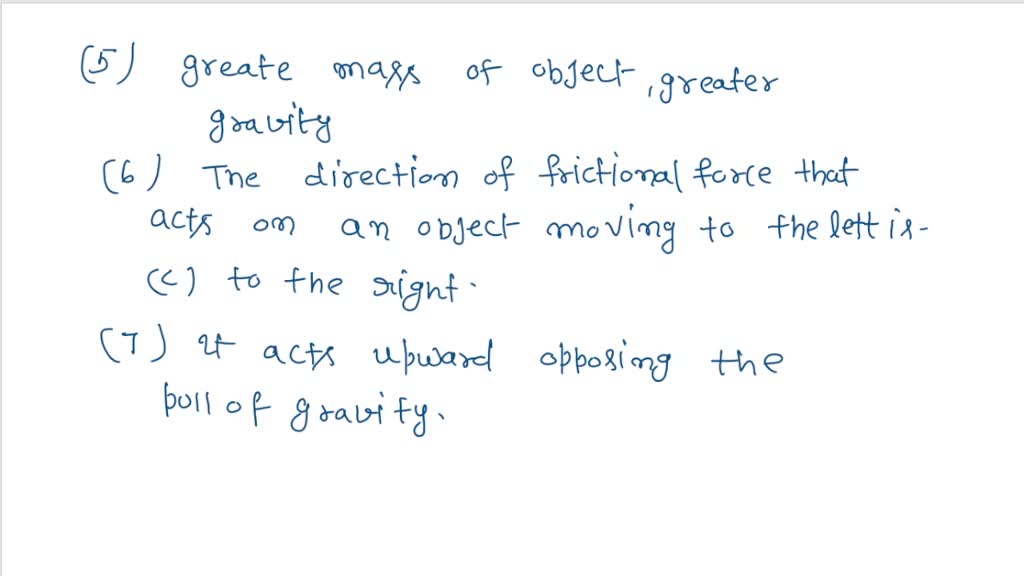 (5) greate mass of object, greater
gravity
(6) The direction of frictional force that
acts on an object moving to the left is-
(c) to the right.
(7) It acts upward opposing the
pull of gravity.